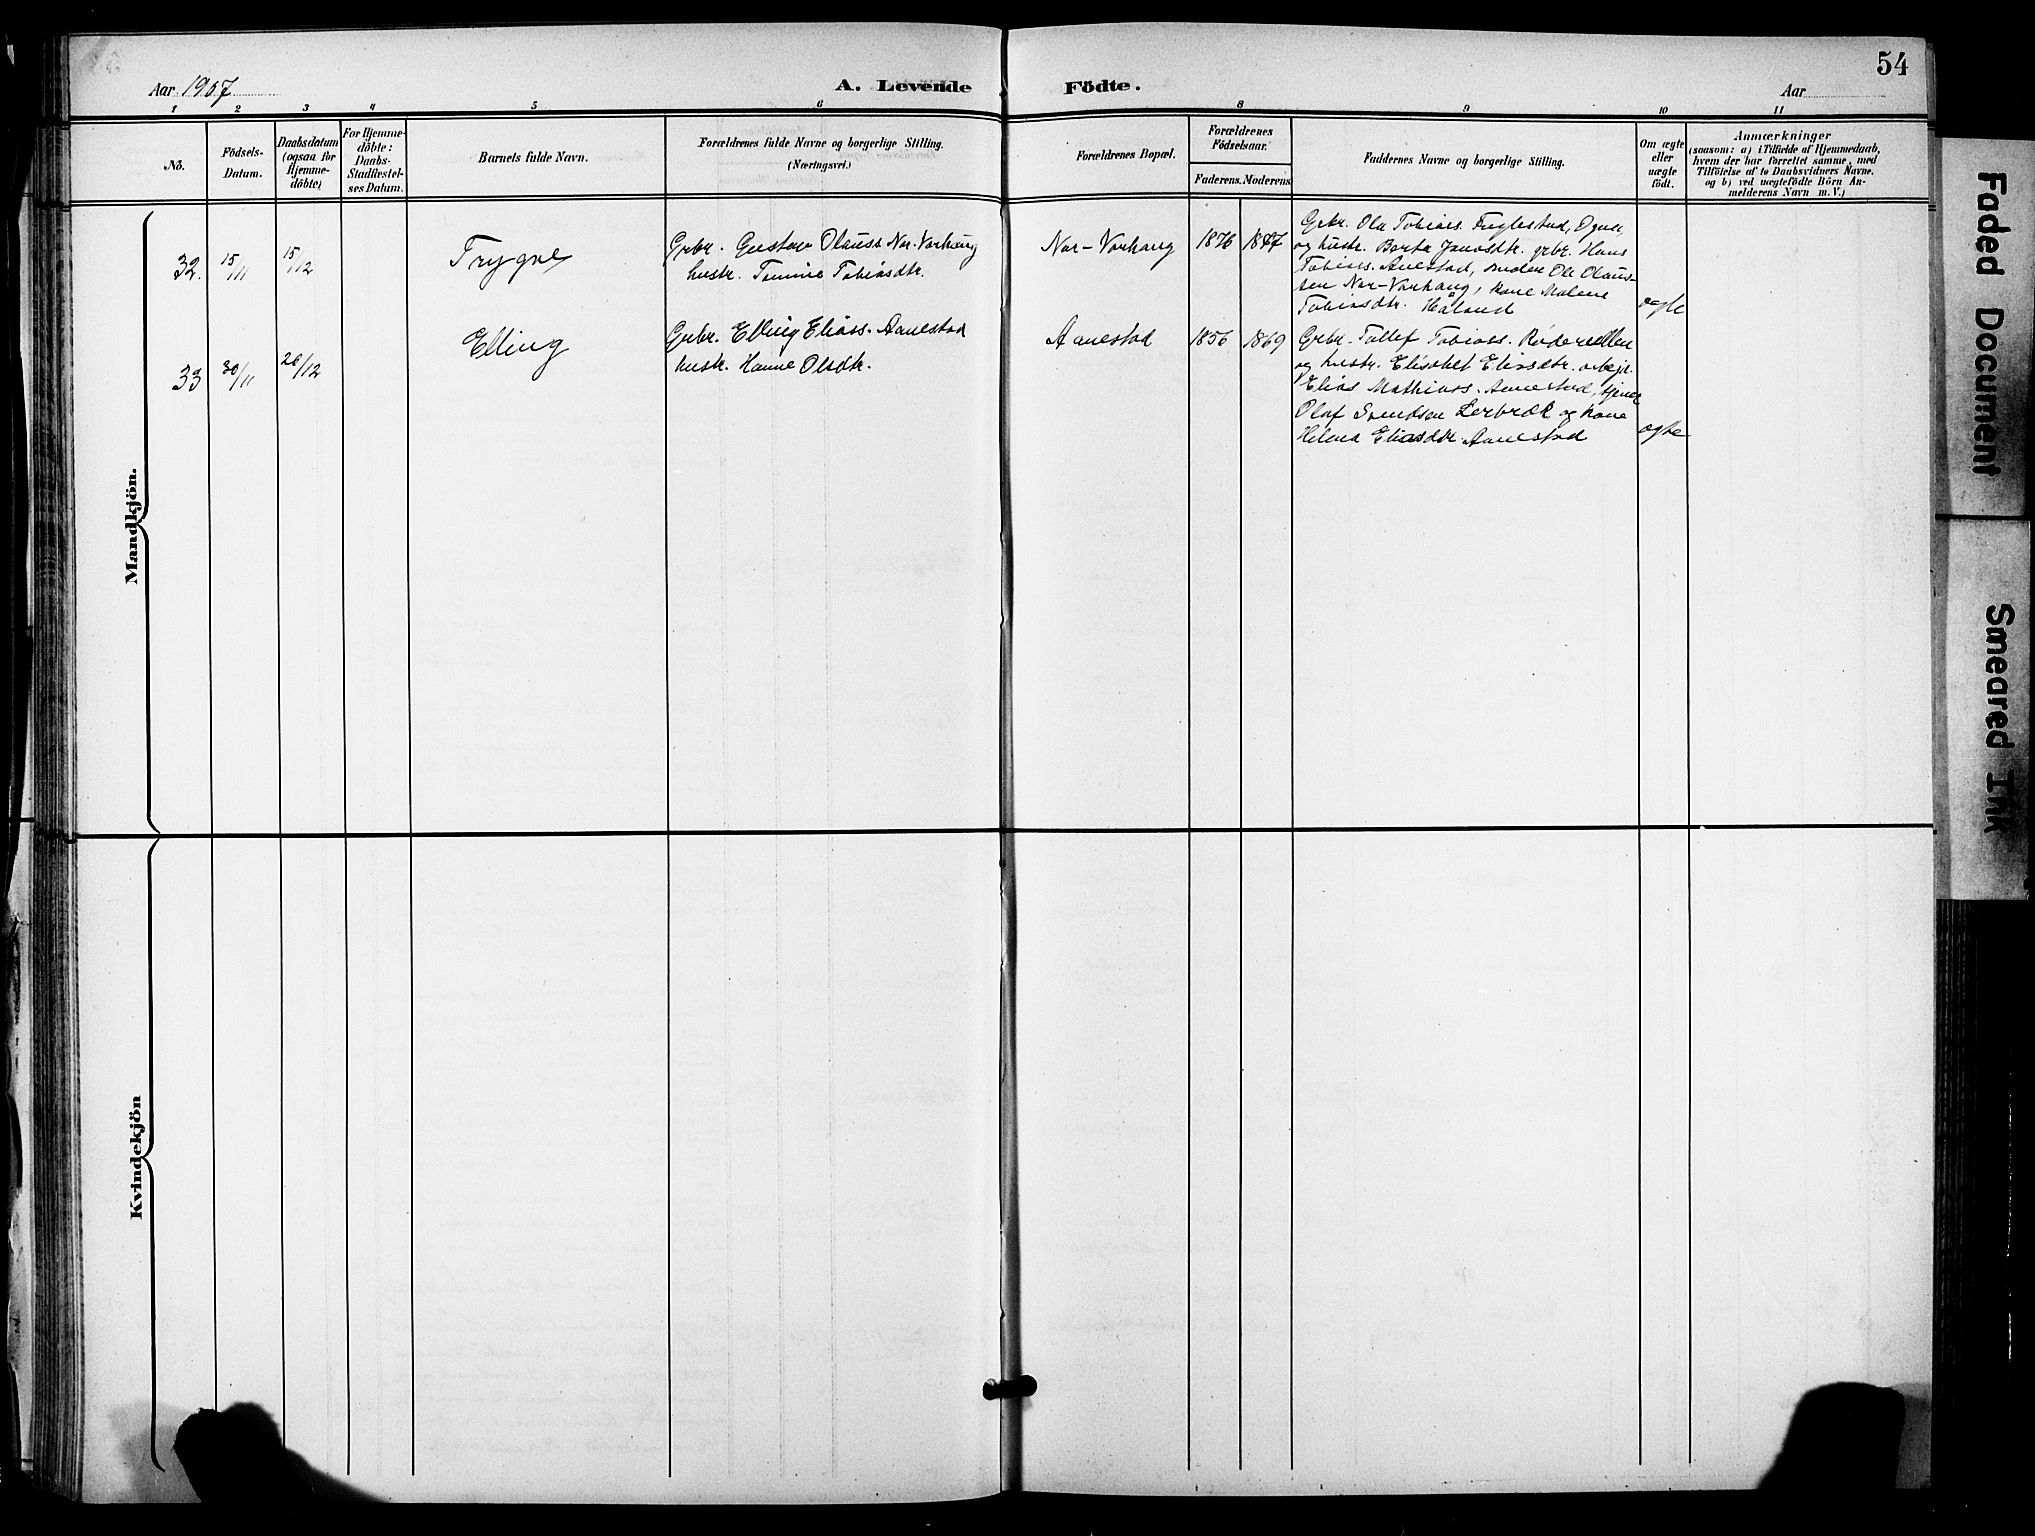 54
Aar 1907
A. Levende
Födte.
Aar
1 2 3 4 5 6 8 9 10 11
No.
Födsels-
Datum.
Daabsdatum
(ogsaa for
Hjemme-
döbte)
For Hjemme-
döbte:
Daabs-
Stadfæstel-
ses Datum.
Barnets fulde Navn.
Forældrenes fulde Navne og borgerlige Stilling.
(Næringsvei.)
Forældrenes Bopæl.
Forældrenes
Födselsaar.
Faderens. Moderens
Faddernes Navne og borgerlige Stilling.
Om ægte
eller
uægte
födt.
Anmærkninger
(saasom: a) i Tilfælde af Hjemmedaab,
hvem der har forrettet samme, med
Tilföielse af to Daabsvidners Navne.
og b) ved uægtefödte Börn An-
melderens Navn m. V.)
Mandkjön.
32. 15/11 15/12 Trygve
Grbr. Gustav Olauss. Nor-Varhaug
hustr. Tomine Tobiasdtr.
Nor-Varhaug 1876 1877
Grbr. Ola Tobiass. Fuglestad, Ogna,
og hustr. Berta Jonasdtr. grbr. Hans
Tobiass. Anestad, Ole Olaus-
sen Nor-Varhaug, kone Malene
Tobiasdtr. Håland
ægte
33 30/11 26/12 Elling
Grbr. Elling Eliass. Aanestad
hustr. Hanne Olsdtr.
Aanestad 1856 1869
Grbr. Tollef Tobiass.
og hustr. Elisabet Eliasdtr. arbejr.
Elias Mathiass. Aanestad, tjener
Olaf Svendsen Lerbræk og kone
Helena Eliasdtr Aanestad
ægte
Kvindekjön
Faded Document
Smeared Ink